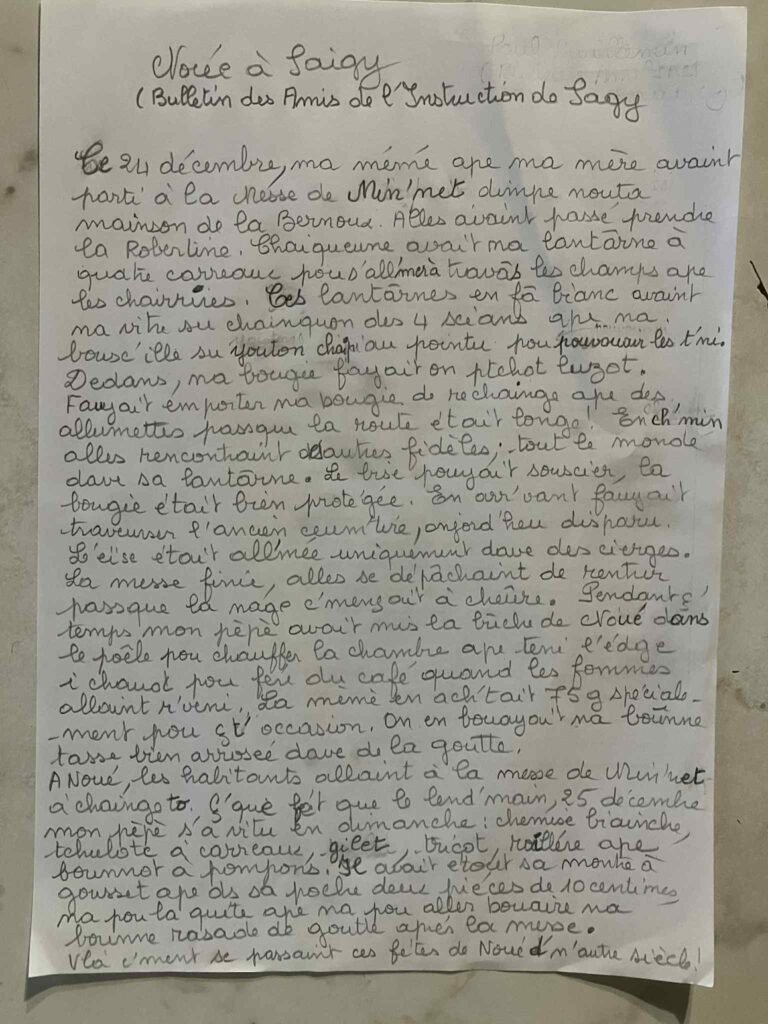 Nouée à Saigy
(Bulletin des Amis de l'Instruction de Sagy
Ce 24 décembre, ma mémé ape ma mère avaint
parti à la Messe de Min'net dimpe nouta
mainson de la Bernoux. Alles avaint passé prendre
la Robertine. Chaiqueune avait na lantârne à
quatre carreaux pou s'all'mer à travâs les champs ape
les chairrires. Ces lantârnes en fâ bianc avaint
na vitre su chainquon des 4 scians ape na
bousc'ille su chapiau pointu pou pouvouair les t'ni.
Dedans, na bougie fayait on ptchot luzot.
Fauyait emporter na bougie de rechainge ape des
allumettes passque la route était longe! En ch'min
alles rencontraint d'autres fidèles; tout le monde
dave sa lantârne. Le bise pouyait souscier, la
bougie était bièn protégée. En arr'vant fauyait
traveurser l'ancien ceum'tire, aujord'heu disparu.
L'éïse était all'mée uniquement dave des cierges.
La messe finie, alles se dépâchaint de rentrer
passque la nage c'mençait à cheûre. Pendant ç'
temps mon pèpè avait mis la bûche de Noué dans
le poêle pou chauffer la chambre ape teni l'édge
i chaud pou fére du café quand les fommes
allaint r'veni. La mèmè en ach'tait 75 g spéciale-
-ment pou ç't' occasion. On en bouayait na boûnne
tasse bien arrosée dave de la goutte.
A Noué, les habitants allaint à la messe de Min'net
à chainge to. Ç'que fét que le lend'main, 25 décembre
mon pèpè s'a vitu en dimanche: chemise biainche,
tchulote à carreaux, gilet, tricot, ape
bounnot à pompons. Il avait etout sa montre à
gousset ape ds sa poche deux pièces de 10 centimes
na pou la quite ape na pou aller bouaire na
bounne rasade de goutte après la messe.
V'là c'ment se passaint ces fêtes de Noué d'n'autre siècle!